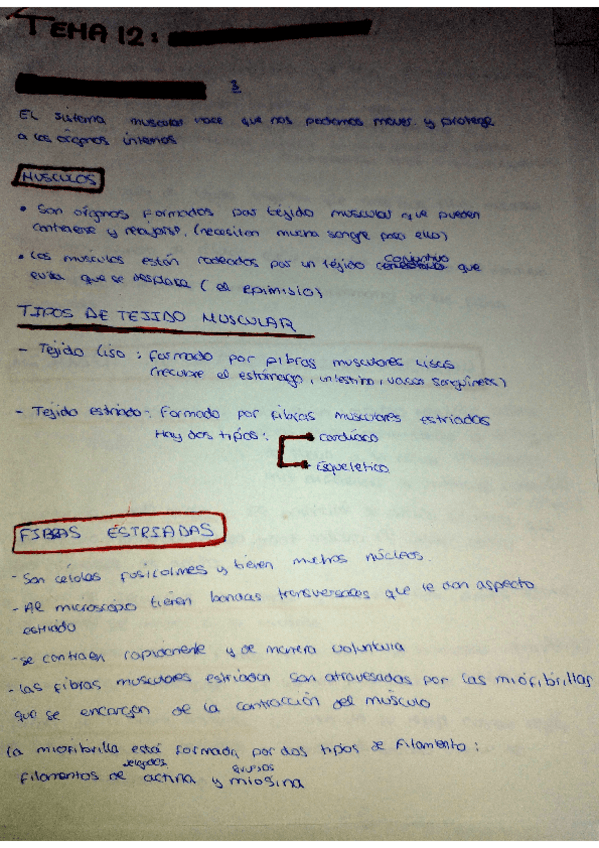 TEMA 12:
3
El sistema muscular hace que nos podamos mover y protege
a los órganos internos
MUSCULOS
• Son órganos formados por tejido muscular que pueden
contraerse y relajarse. (necesitan mucha sangre para ello)
• Los músculos están rodeados por un tejido conjuntivo que
evita que se desplaza (el epimisio)
TIPOS DE TEJIDO MUSCULAR
- Tejido liso: formado por fibras musculares lisas
(recubre el estómago, intestino, vasos sanguíneos)
- Tejido estriado: formado por fibras musculares estriadas
Hay dos tipos:
cardíaco
Esquelético
FIBRAS ESTRIADAS
- Son células fusicolmes y tienen muchos núcleos.
- Al microscópio tienen bandas transversales que le dan aspecto
estriado
- se contraen rapidamente y de manera voluntaria
- Las fibras musculares estriadan son atravesadas por las miófibrillas
que se encargan de la contracción del músculo
La miofibrilla está formada por dos tipos de filamento:
delgados gruesos
filamentos de actina y miosina